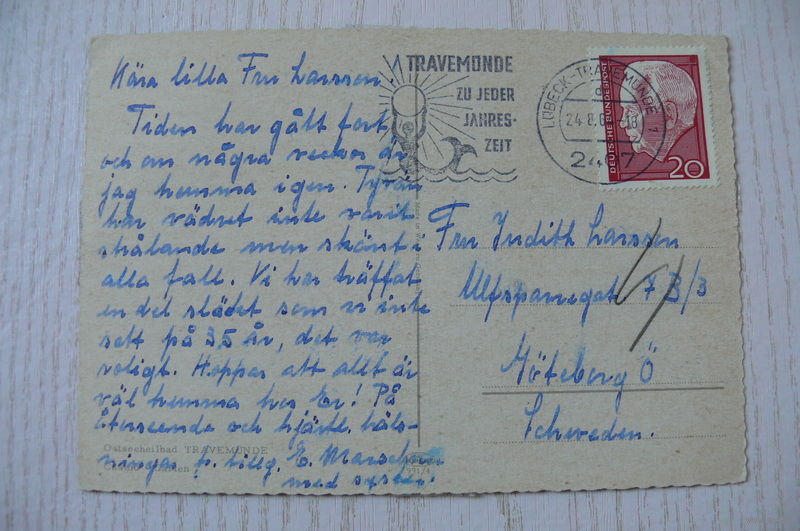 Kära lilla Fru Larsson.
Tiden har gått fort
och om några veckor är
jag hemma igen. Tyvärr
har vädret inte varit
strålande men skönt i
alla fall. Vi har träffat
en del släkt som vi inte
sett på 35 år, det var
roligt. Hoppas att allt är
väl hemma hos Er! På
återseende och hjärtl. häls-
ningar fr. tillg. E.
med syster.
TRAVEMÜNDE
ZU JEDER
JAHRES-
ZEIT
LÜBECK-TRAVEMÜNDE 1
d
24.8.
2407
DEUTSCHE BUNDESPOST
20
Fru Judith Larsson
Ulfsparregat 7 B/3
Göteborg Ö
Schweden.
Ostseeheilbad TRAVEMÜNDE
991/4